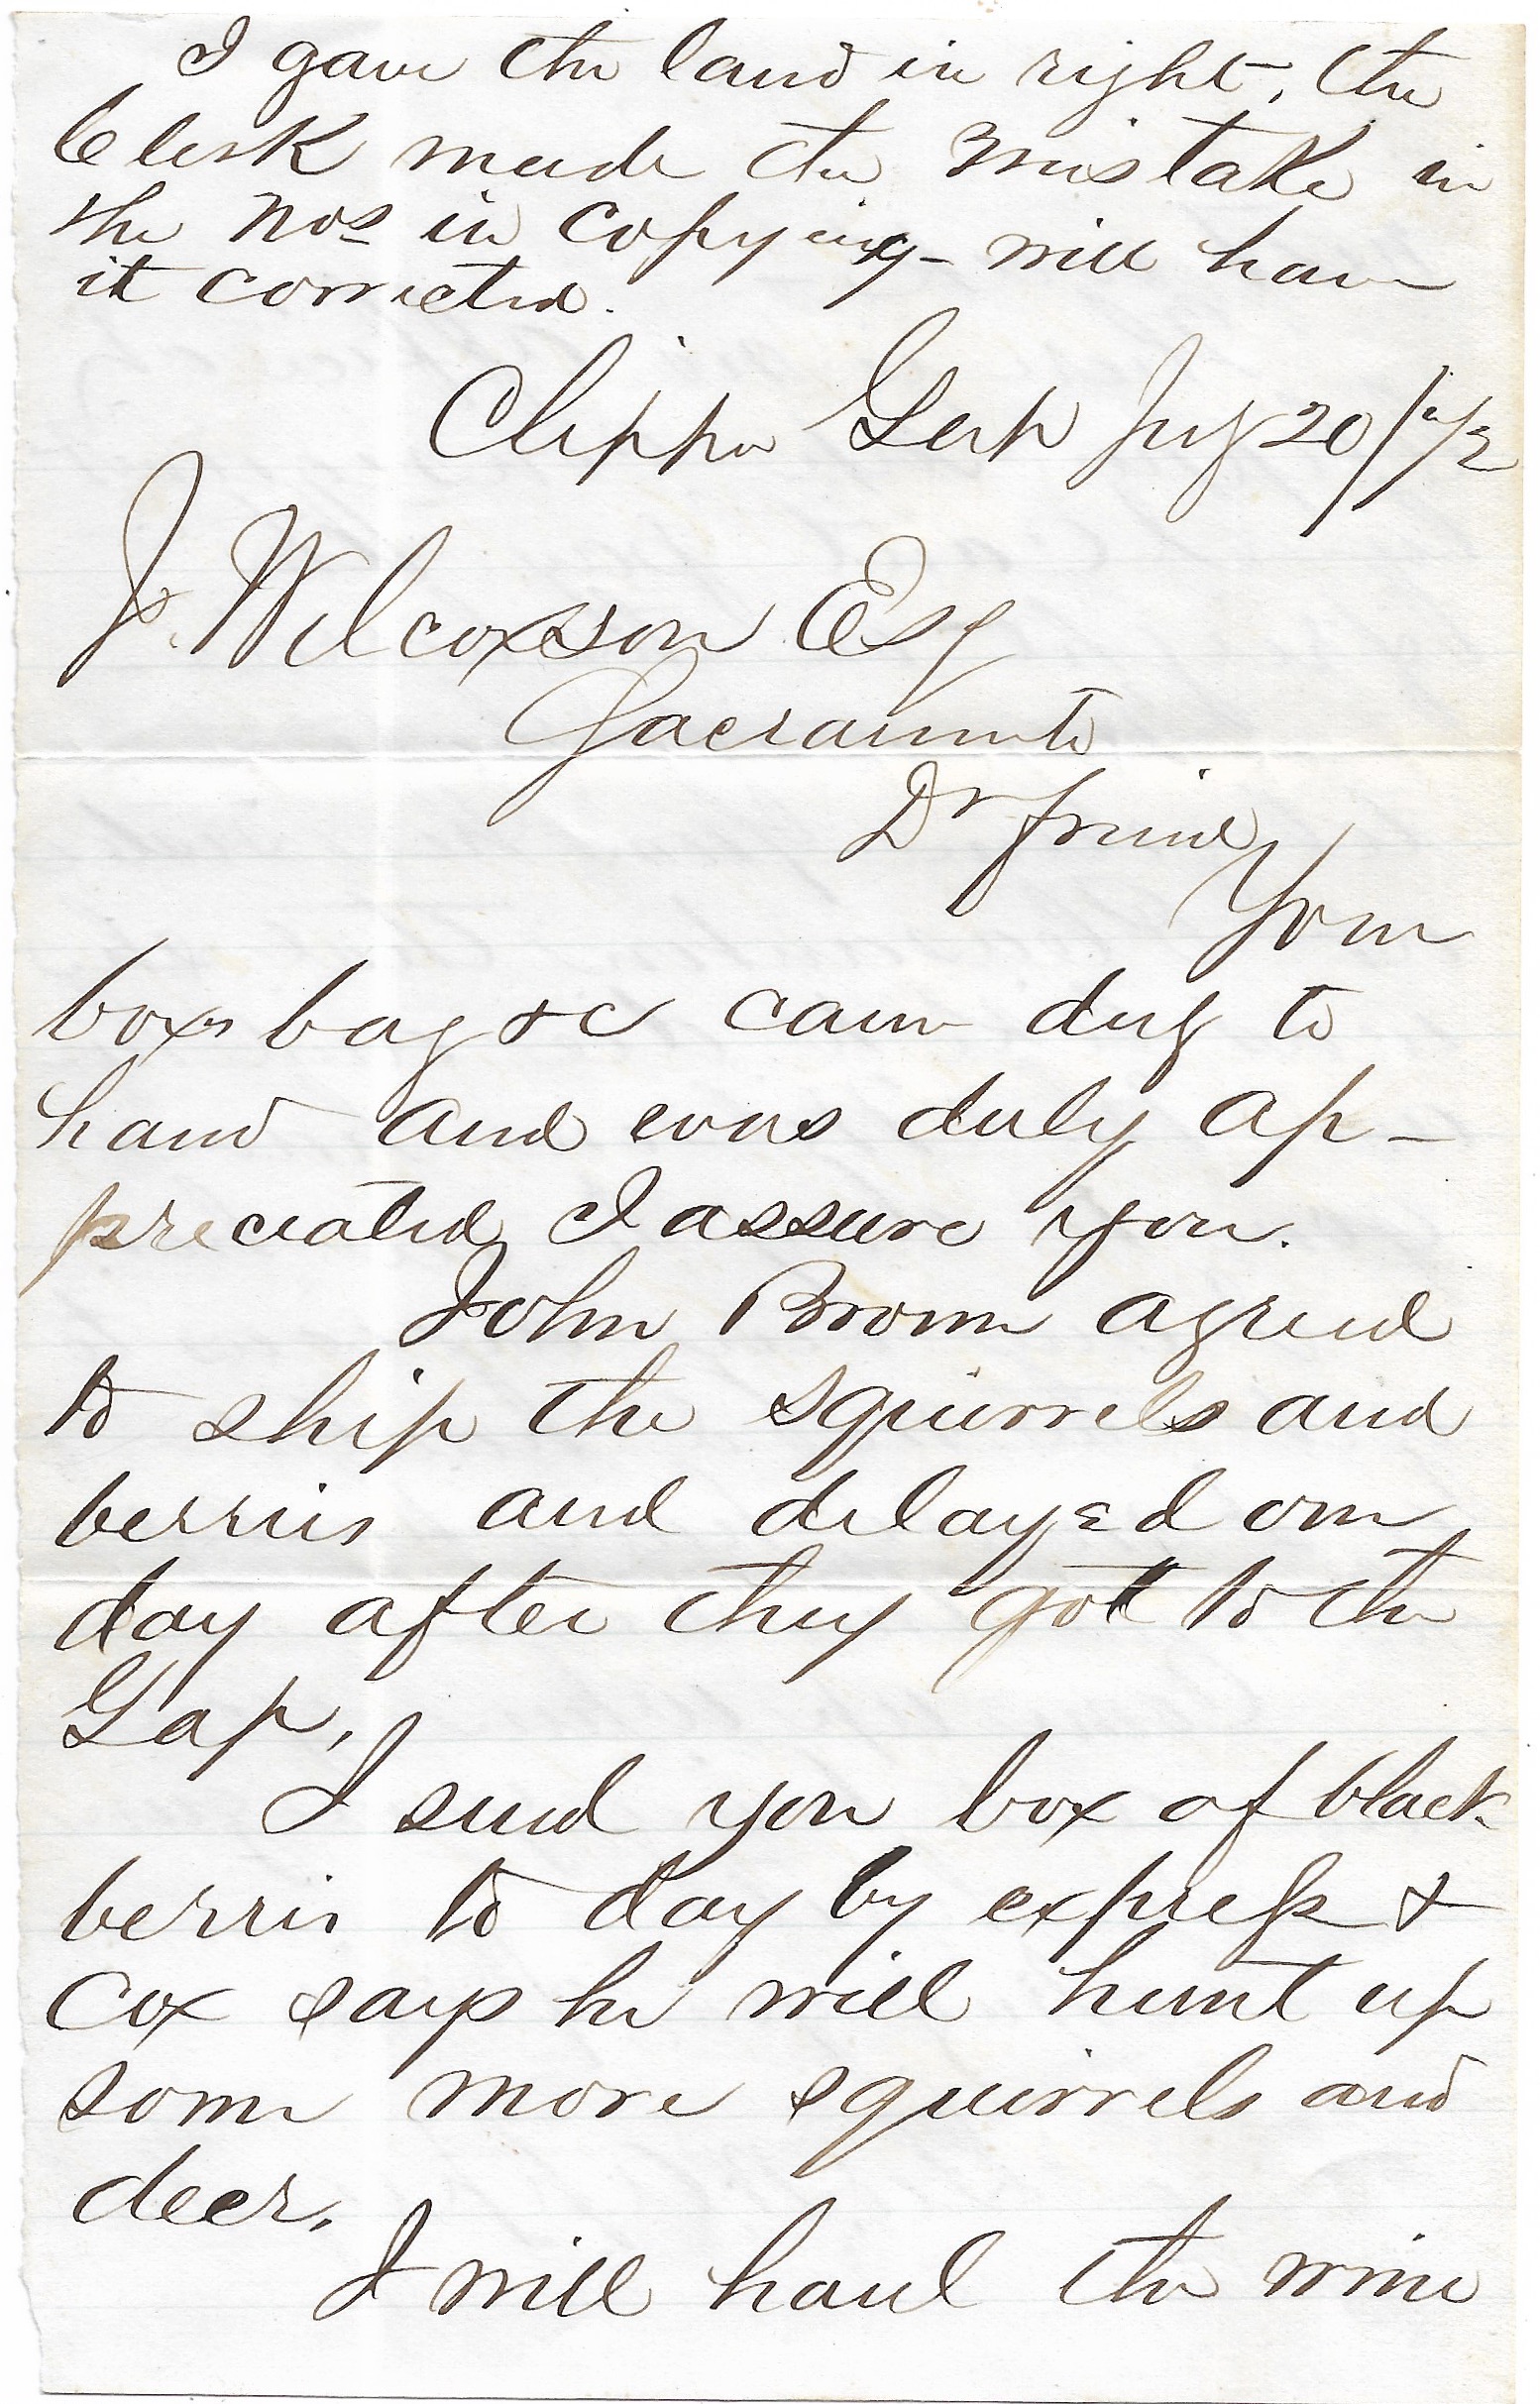 I gave the land in right, the
Clerk made the mistake in
the Nos in copying - will have
it corrected.
Clipper Gap July 20
J. Wilcoxson Esq
Sacramento
Dr friend
Your
box bag &c came duly to
hand and was duly ap-
preciated I assure you.
John Brown agreed
to ship the squirrels and
berries and delayed one
day after they got to the
Gap.
I send you box of black
berries to day by express &
Cox says he will hunt up
some more squirrels and
deer.
I will haul the wine